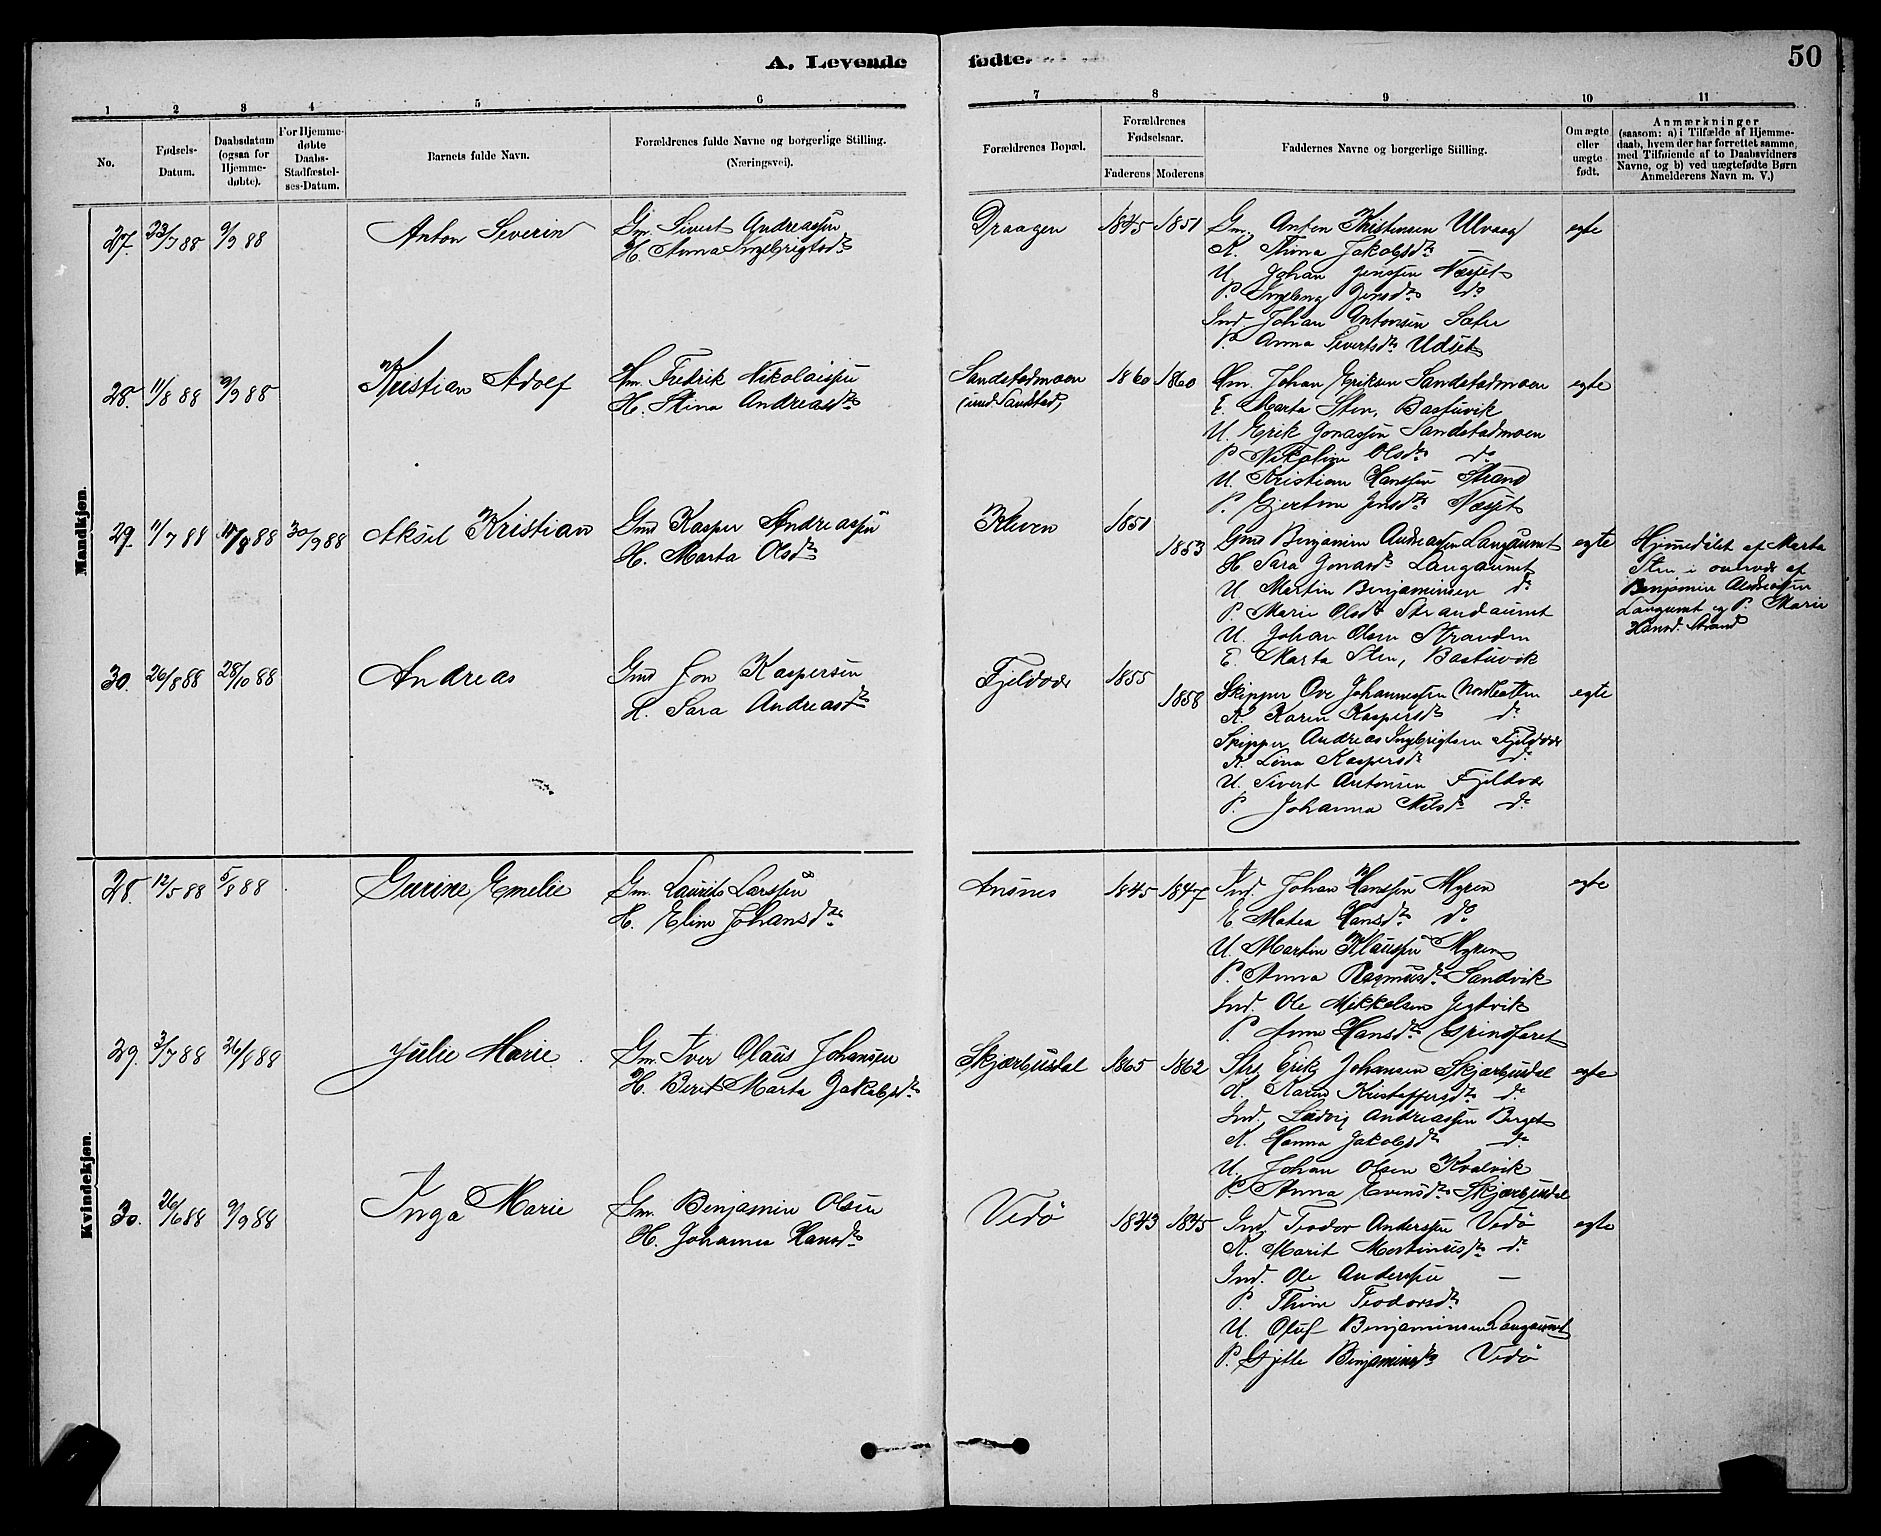 A. Levende fødte.
50
1 2 3 4 5 6 7 8 9 10 11
No.
Fødsels-Datum.
Daabsdatum (ogsaa for Hjemme-døbte).
For Hjemme-døbte Daabs-Stadfæstel-ses-Datum.
Barnets fulde Navn.
Forældrenes fulde Navne og borgerlige Stilling. (Næringsvei).
Forældrenes Bopæl.
Forældrenes Fødselsaar.
Faderens Moderens
Faddernes Navne og borgerlige Stilling.
Om ægte eller uægte født.
Anmærkninger
(saasom: a) i Tilfælde af Hjemme-
daab, hvem der har forrettet samme,
med Tilføiende af to Daabsvidners
Navne, og b) ved uægtefødte Børn
Anmelderens Navn m. V.)
Mandkjøn.
27. 23/7 88 9/9 88 Anton Severin
Gm. Sivert Andreassen
H. Anna Ingebrigtsd.
Draagen 1845 1851
Gm. Anton Kristensen Ulvaag
K. Stina Jakobsd.
U. Johan Jenssen Næsset
P. Ingeborg Jensd. do
Ind. Johan Antonsen Sæter
P. Anna Sivertsd. Udset
egte
28. 11/8 88 9/9 88 Kristian Adolf
Hm. Fredrik Nikolaissen
H. Stina Andreasd.
Sandstadmoen
(und. Sandstad)
1860 1860
Hm. Johan Eriksen Sandstadmoen
E. Marta Sten, Bastuvik
U. Erik Jonassen Sandstadmoen
P. Nikoline Olsd. do
U. Kristian Hanssen Strand
P. Gjertine Jensd. Næsset
egte
29. 11/7 88 88 30/9 88 Aksel Kristian
Gmd Kasper Andreassen
H. Marta Olsd.
Kleven 1851 1853
Gmd Benjamin Andreassen Langaunet
H. Sara Jonasd. Langaunet
U. Martin Benjaminsen do
P. Marie Olsd. Strandaunet
U. Johan Olsen Stranden
E. Marta Sten, Bastuvik
egte
Hjemmedøbt af Marta
Sten i overvær af
Benjamin Andreassen
Langaunet og P. Marie
Hansd. Strand
30. 26/8 88 28/10 88 Andreas
Gmd Jon Kaspersen
H. Sara Andreasd.
Fjeldvær 1855 1858
Skipper Ove Johannessen
K. Karen Kaspersd. do
Skipper Andreas Ingebrigtsen Fjeldvær
K. Lina Kaspersd. do
U. Sivert Antonsen Fjeldvær
P. Johanna Nilsd. do
egte
Kvindekjøn.
28. 12/5 88 5/8 88 Gurine Emelie
Gm. Laurits Larssen
H. Eline Johansd.
Ansnes 1845 1847
Ind. Johan Hanssen Myren
E. Matea Hansd. do
U. Martin Klaussen Myren
P. Anna Rasmusd. Sandvik
Ind. Ole Mikkelsen Jegtvik
P. Anne Hansd. Grindfaret
egte
29. 3/7 88 26/8 88 Julie Marie
Gm. Iver Olaus Johansen
H. Berit Marta Jakobsd.
Skjærbusdal 1865 1862
Erik Johansen Skjærbusdal
K. Karen Kristoffersd. do
Ind. Ludvig Andreassen Berget
K. Hanna Jakobsd. do
U. Johan Olsen Kvalvik
P. Anna Evensd. Skjærbusdal
egte
30. 26/6 88 9/9 88 Inga Marie
Gm. Benjamin Olsen
H. Johanna Hansd.
Vedø 1843 1845
Ind. Teodor Anderssen Vedø
K. Marit Martinusd. do
Ind. Ole Anderssen —
P. Thine Teodorsd.
U. Oluf Benjaminsen Langaunet
P. Gjette Benjaminsd. Vedø
egte